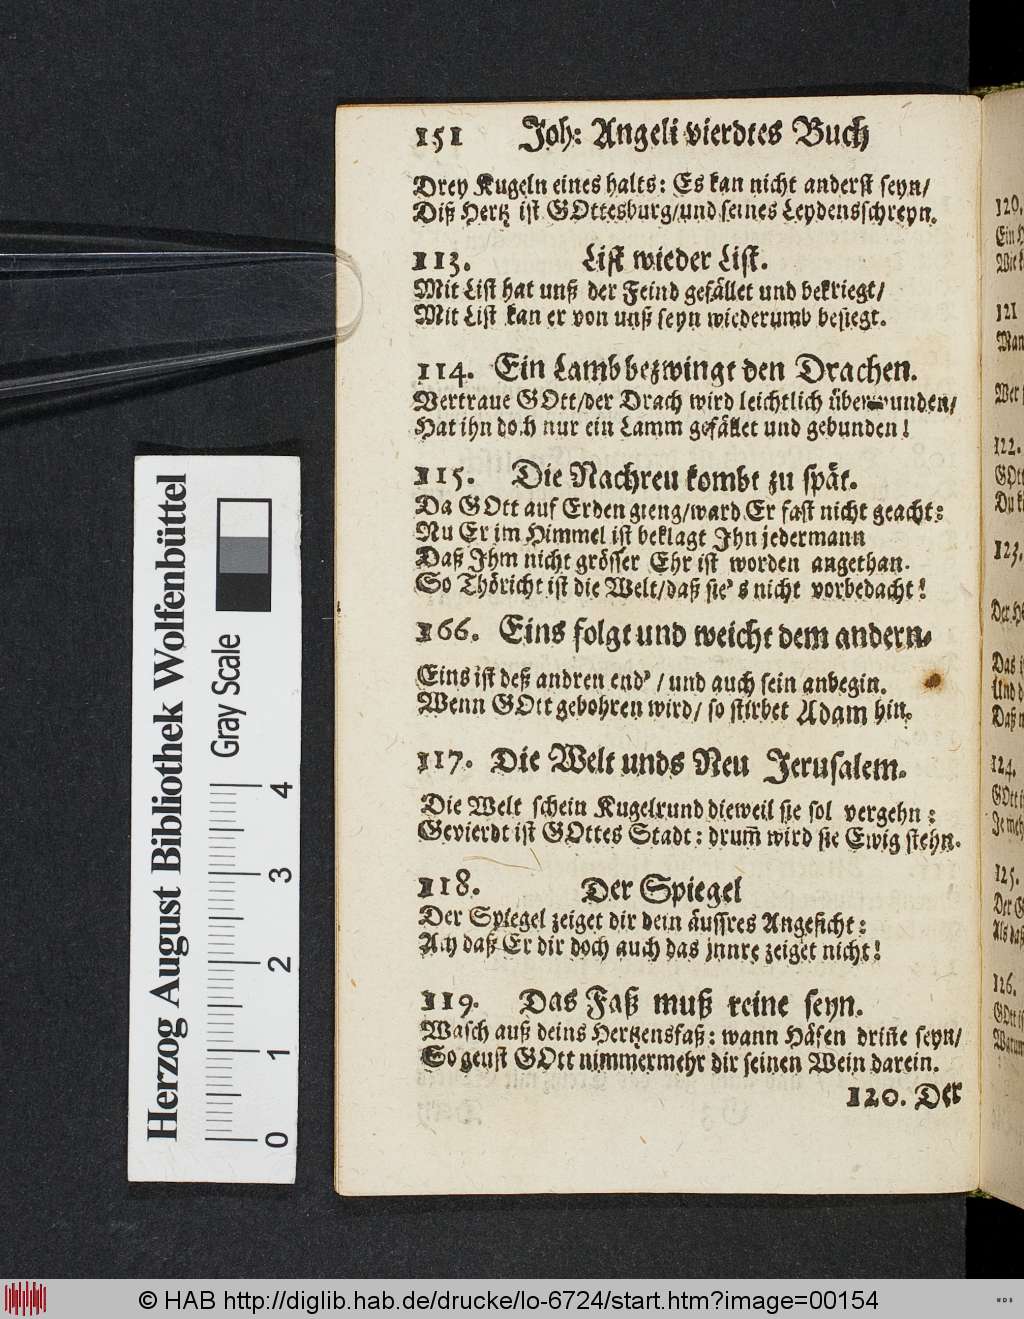 151 Joh: Angeli vierdtes Buch
Drey Kugeln eines halts: Es kan nicht anderst seyn/
Diß Hertz ist GOttesburg/und seines Leydensschreyn.
113. List wieder List.
Mit List hat unß der Feind gefället und bekriegt/
Mit List kan er von unß seyn wiederumb besiegt.
114. Ein Lamb bezwingt den Drachen.
Vertraue GOtt/der Drach wird leichtlich überwunden/
Hat ihn doch nur ein Lamm gefället und gebunden!
115. Die Nachreu kombt zu spät.
Da GOtt auf Erden gieng/ward Er fast nicht geacht:
Nu Er im Himmel ist beklagt Jhn jedermann
Daß Jhm nicht grösser Ehr ist worden angethan.
So Thöricht ist die Welt/daß sie's nicht vorbedacht!
166. Eins folgt und weicht dem andern.
Eins ist deß andren end'/und auch sein anbegin.
Wenn GOtt gebohren wird/so stirbet Adam hin.
117. Die Welt unds Neu Jerusalem.
Die Welt schein Kugelrund dieweil sie sol vergehn:
Gevierdt ist GOttes Stadt: drum̃ wird sie Ewig stehn.
118. Der Spiegel
Der Spiegel zeiget dir dein äussres Angesicht:
Ach daß Er dir doch auch das jnnre zeiget nicht!
119. Das Faß muß reine seyn.
Wasch auß deins Hertzensfaß: wann Häfen driñe seyn/
So geust GOtt nimmermehr dir seinen Wein darein.
120. Der
120.
Wie
121
Man
Wer
122.
GOtt
123.
Das
Und
Daß
124.
125.
Der
126.
Warum
Herzog August Bibliothek Wolfenbüttel
Gray Scale
0 1 2 3 4
© HAB http://diglib.hab.de/drucke/lo-6724/start.htm?image=00154
WDB